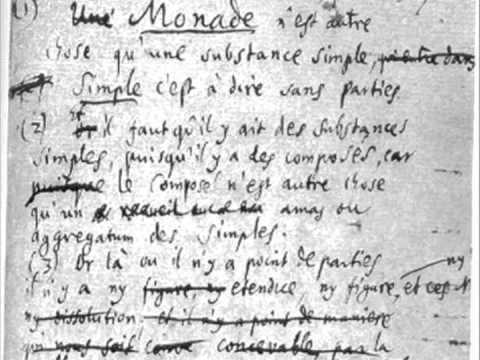 (1) Une Monade n'est autre
chose qu'une substance simple, qui entre dans
Simple c'est à dire sans parties
(2) Et il faut qu'il y ait des substances
simples, puisqu'il y a des composés, car
puisque le composé n'est autre chose
qu'un recueil amas ou
aggregatum des simples.
(3) Or là ou il n'y a point de parties ny
il n'y a ny figure, ny etendue, ny figure, et
ny dissolution. et il n'y a point de maniere
qui nous soit concevable par la